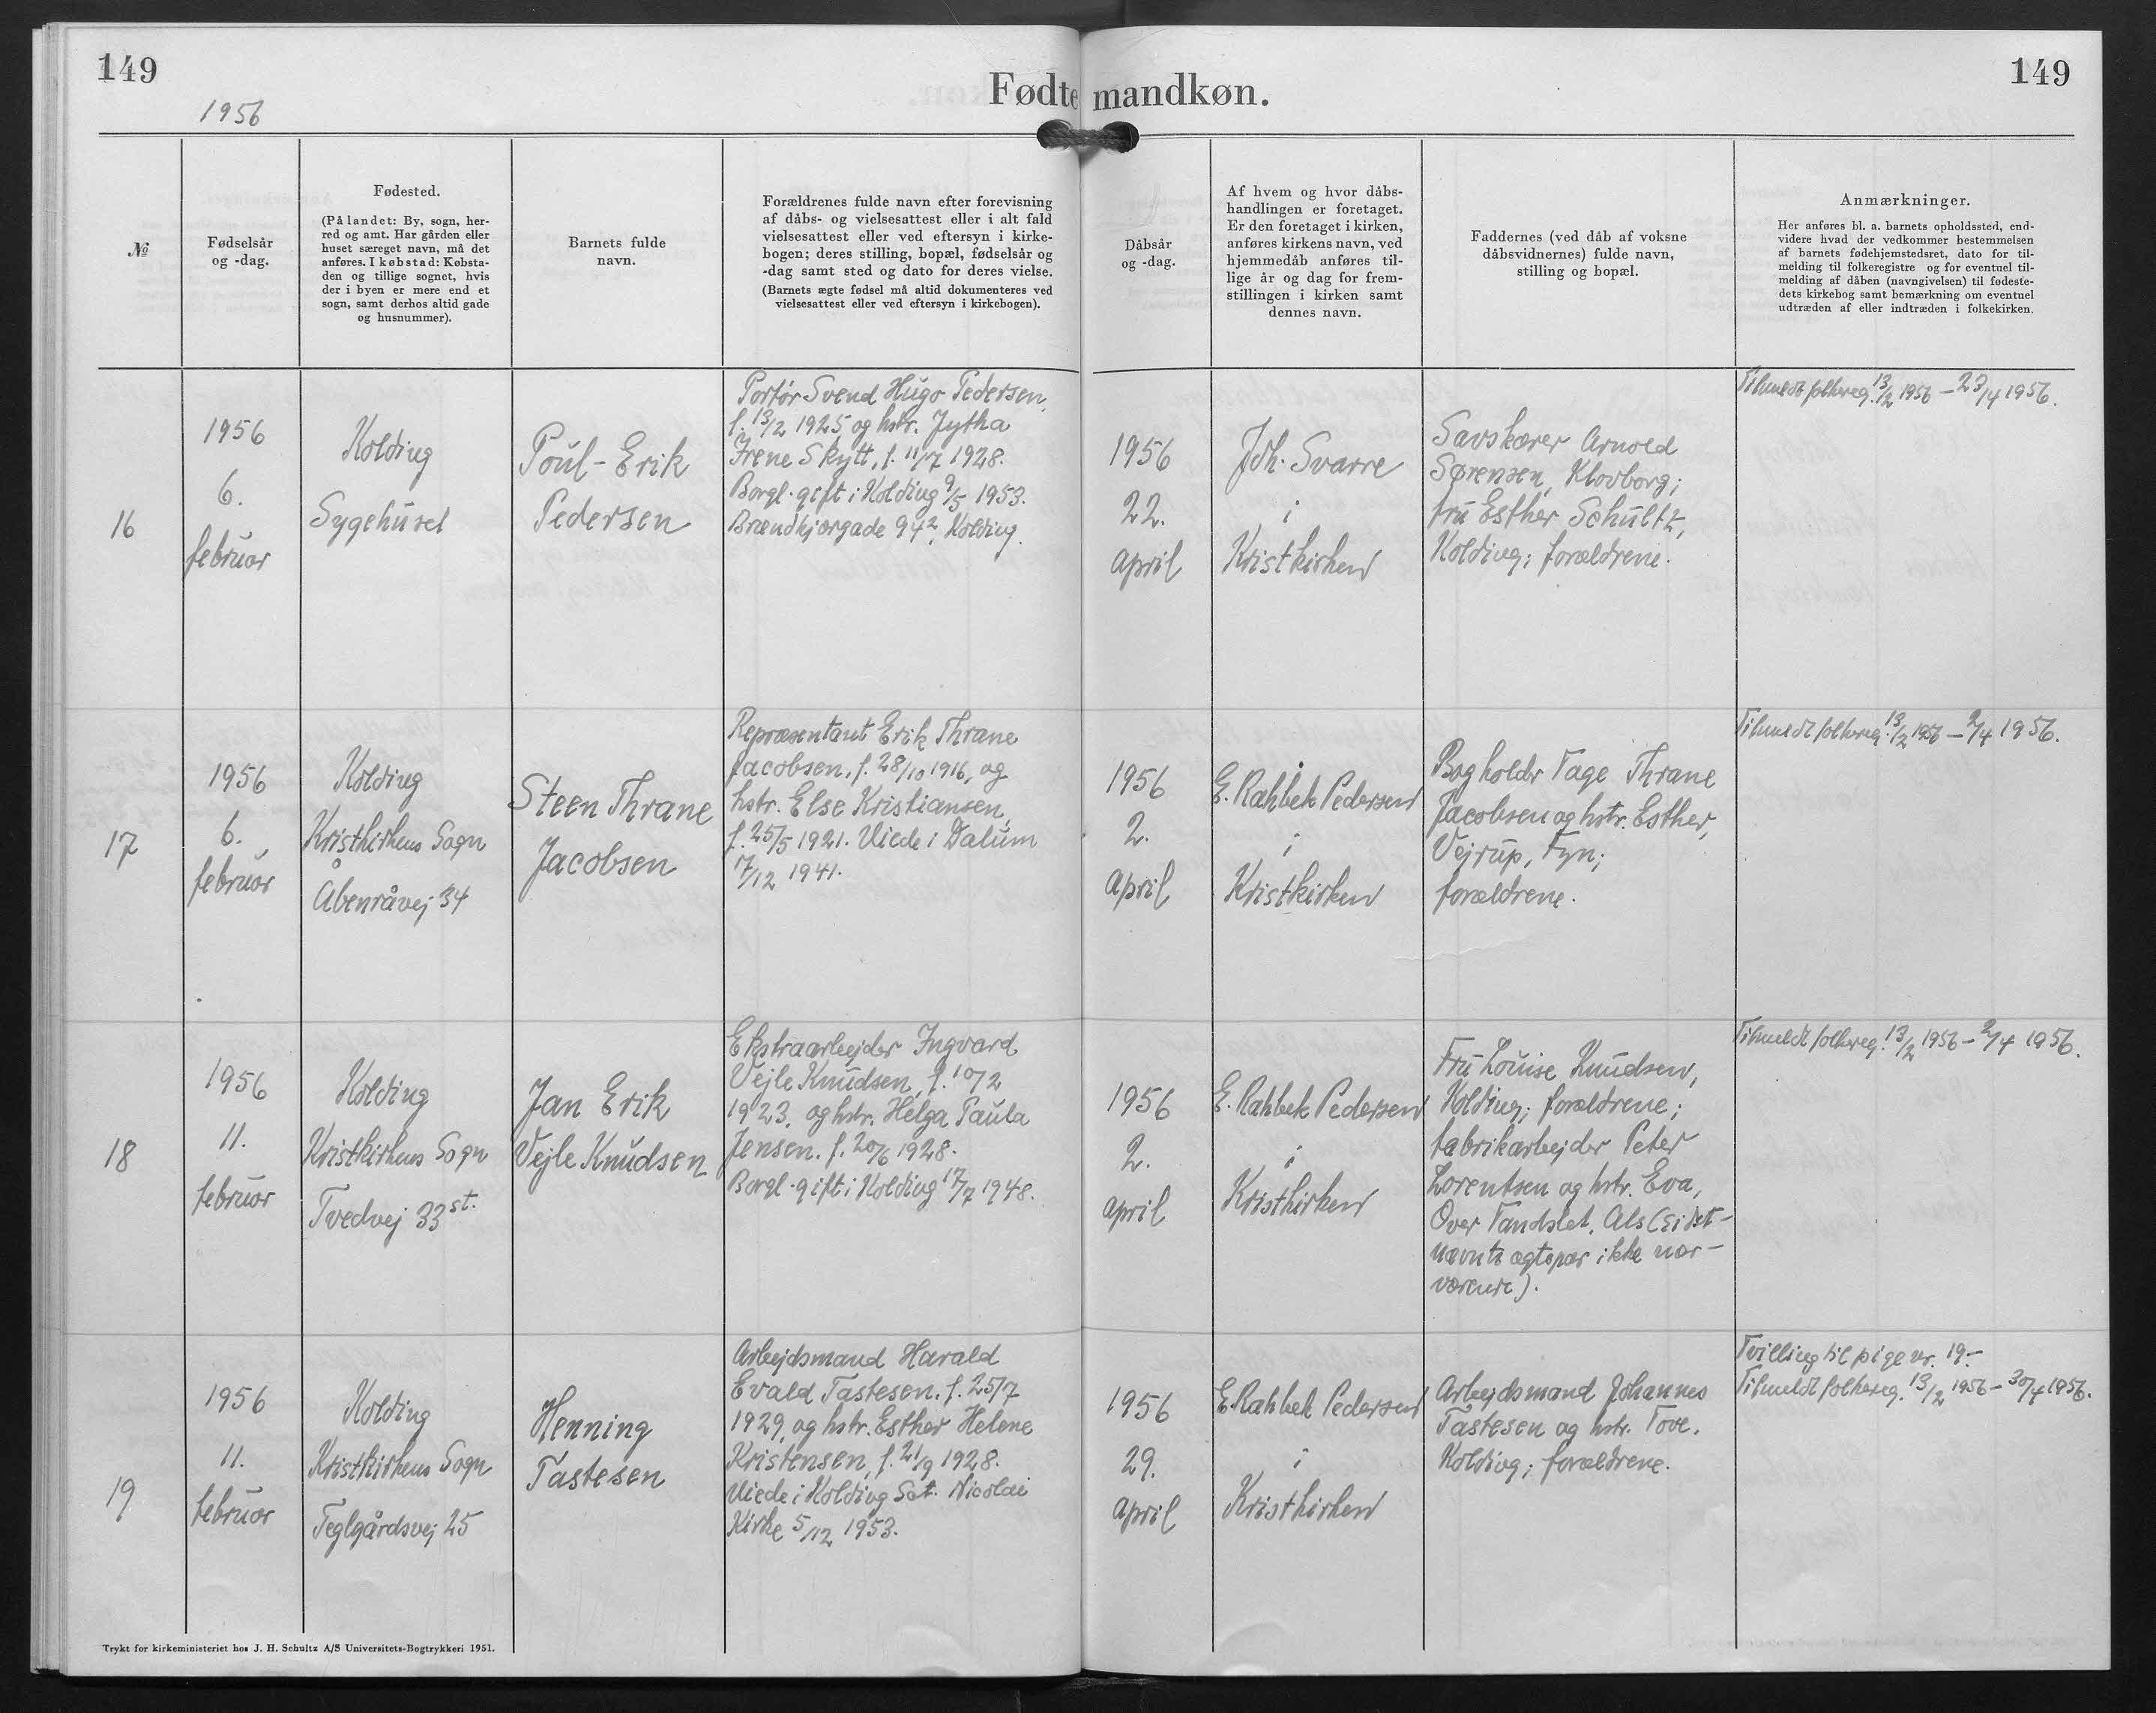 149
149
Fødte mandkøn.
1956
№
Fødselsår
og -dag.
Fødested.
(På landet: By, sogn, her-
red og amt. Har gården eller
huset særeget navn, må det
anføres. I købstad: Købsta-
den og tillige sognet, hvis
der i byen er mere end et
sogn, samt derhos altid gade
og husnummer).
Barnets fulde
navn.
Forældrenes fulde navn efter forevisning
af dåbs- og vielsesattest eller i alt fald
vielsesattest eller ved eftersyn i kirke-
bogen; deres stilling, bopæl, fødselsår og
-dag samt sted og dato for deres vielse.
(Barnets ægte fødsel må altid dokumenteres ved
vielsesattest eller ved eftersyn i kirkebogen).
Dåbsår
og -dag.
Af hvem og hvor dåbs-
handlingen er foretaget.
Er den foretaget i kirken,
anføres kirkens navn, ved
hjemmedåb anføres til-
lige år og dag for frem-
stillingen i kirken samt
dennes navn.
Faddernes (ved dåb af voksne
dåbsvidnernes) fulde navn,
stilling og bopæl.
Anmærkninger.
Her anføres bl. a. barnets opholdssted, end-
videre hvad der vedkommer bestemmelsen
af barnets fødehjemstedsret, dato for til-
melding til folkeregistre og for eventuel til-
melding af dåben (navngivelsen) til fødeste-
dets kirkebog samt bemærkning om eventuel
udtræden af eller indtræden i folkekirken.
16
1956
6.
februar
Kolding
Sygehuset
Poul-Erik
Pedersen
Portør Svend Hugo Pedersen,
f. 13/2 1925 og hstr. Jytha
Irene Skytt, f. 11/7 1928.
Borgl. gift i Kolding 9/5 1953.
Brændkjærgade 94², Kolding.
1956
22.
april
Joh. Svarre
i
Kristkirken
Savskærer Arnold
Sørensen, Klovborg;
fru Esther Schultz,
Kolding; forældrene.
Tilmeldt folkereg. 13/2 1956 – 23/4 1956.
17
1956
6.
februar
Kolding
Kristkirkens Sogn
Åbenråvej 34
Steen Thrane
Jacobsen
Repræsentant Erik Thrane
Jacobsen, f. 28/10 1916, og
hstr. Else Kristiansen,
f. 25/5 1921. Viede i Dalum
17/12 1941.
1956
2.
april
E. Rahbek Pedersen
i
Kristkirken
Bogholder Tage Thrane
Jacobsen og hstr. Esther,
Vejrup, Fyn;
forældrene.
Tilmeldt folkereg. 13/2 1956 – 2/4 1956.
18
1956
11.
februar
Kolding
Kristkirkens Sogn
Tvedvej 33 st.
Jan Erik
Vejle Knudsen
Ekstraarbejder Ingvard
Vejle Knudsen, f. 10/2
1923, og hstr. Helga Paula
Jensen. f. 20/6 1928.
Borgl. gift i Kolding 17/7 1948.
1956
2.
april
E. Rahbek Pedersen
i
Kristkirken
Fru Louise Knudsen,
Kolding; forældrene;
fabrikarbejder Peter
Lorentsen og hstr. Eva,
Over Tandslet, Als (sidst-
nævnte ægtepar ikke nær-
værende).
Tilmeldt folkereg. 13/2 1956 – 2/4 1956.
19
1956
11.
februar
Kolding
Kristkirkens Sogn
Teglgårdsvej 25
Henning
Tastesen
Arbejdsmand Harald
Evald Tastesen. f. 25/7
1929, og hstr. Esther Helene
Kristensen, f. 21/9 1928.
Viede i Kolding Sct. Nicolai
Kirke 5/12 1953.
1956
29.
april
E. Rahbek Pedersen
i
Kristkirken
Arbejdsmand Johannes
Tastesen og hstr. Tove,
Kolding; forældrene.
Tvilling til pige nr. 19.–
Tilmeldt folkereg. 13/2 1956 – 30/4 1956.
Trykt for kirkeministeriet hos J. H. Schultz A/S Universitets-Bogtrykkeri 1951.